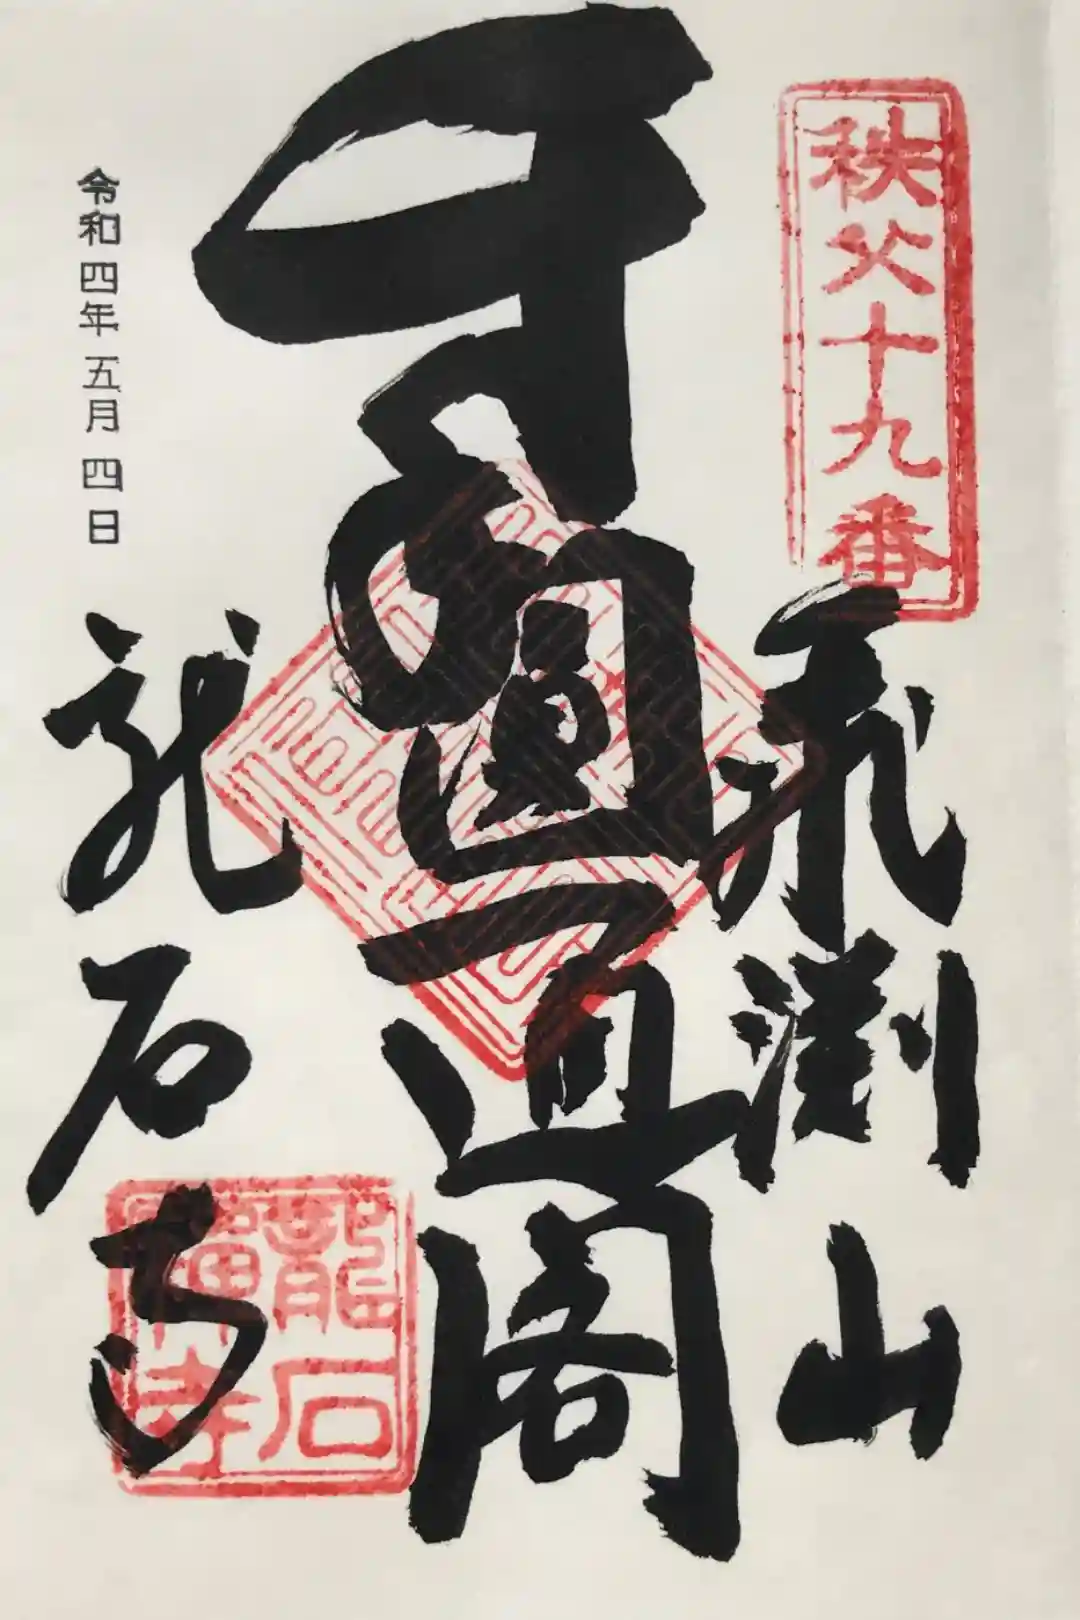 秩父十九番
飛渕山
圓通閣
龍石寺
龍石
寺
令和四年五月四日